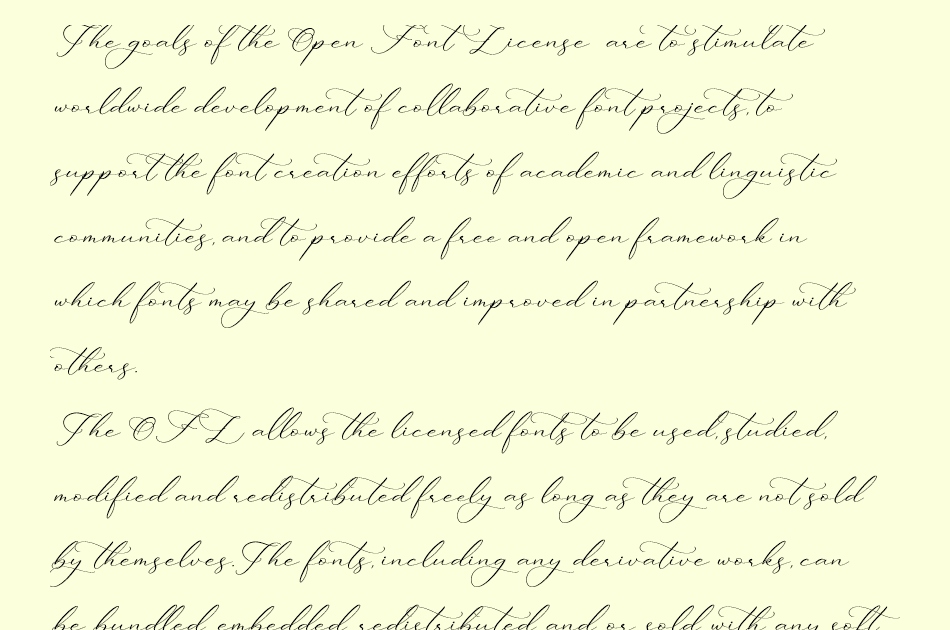 The goals of the Open Font License are to stimulate
worldwide development of collaborative font projects, to
support the font creation efforts of academic and linguistic
communities, and to provide a free and open framework in
which fonts may be shared and improved in partnership with
others.
The OFL allows the licensed fonts to be used, studied,
modified and redistributed freely as long as they are not sold
by themselves. The fonts, including any derivative works, can
be bundled embedded redistributed and or sold with any soft